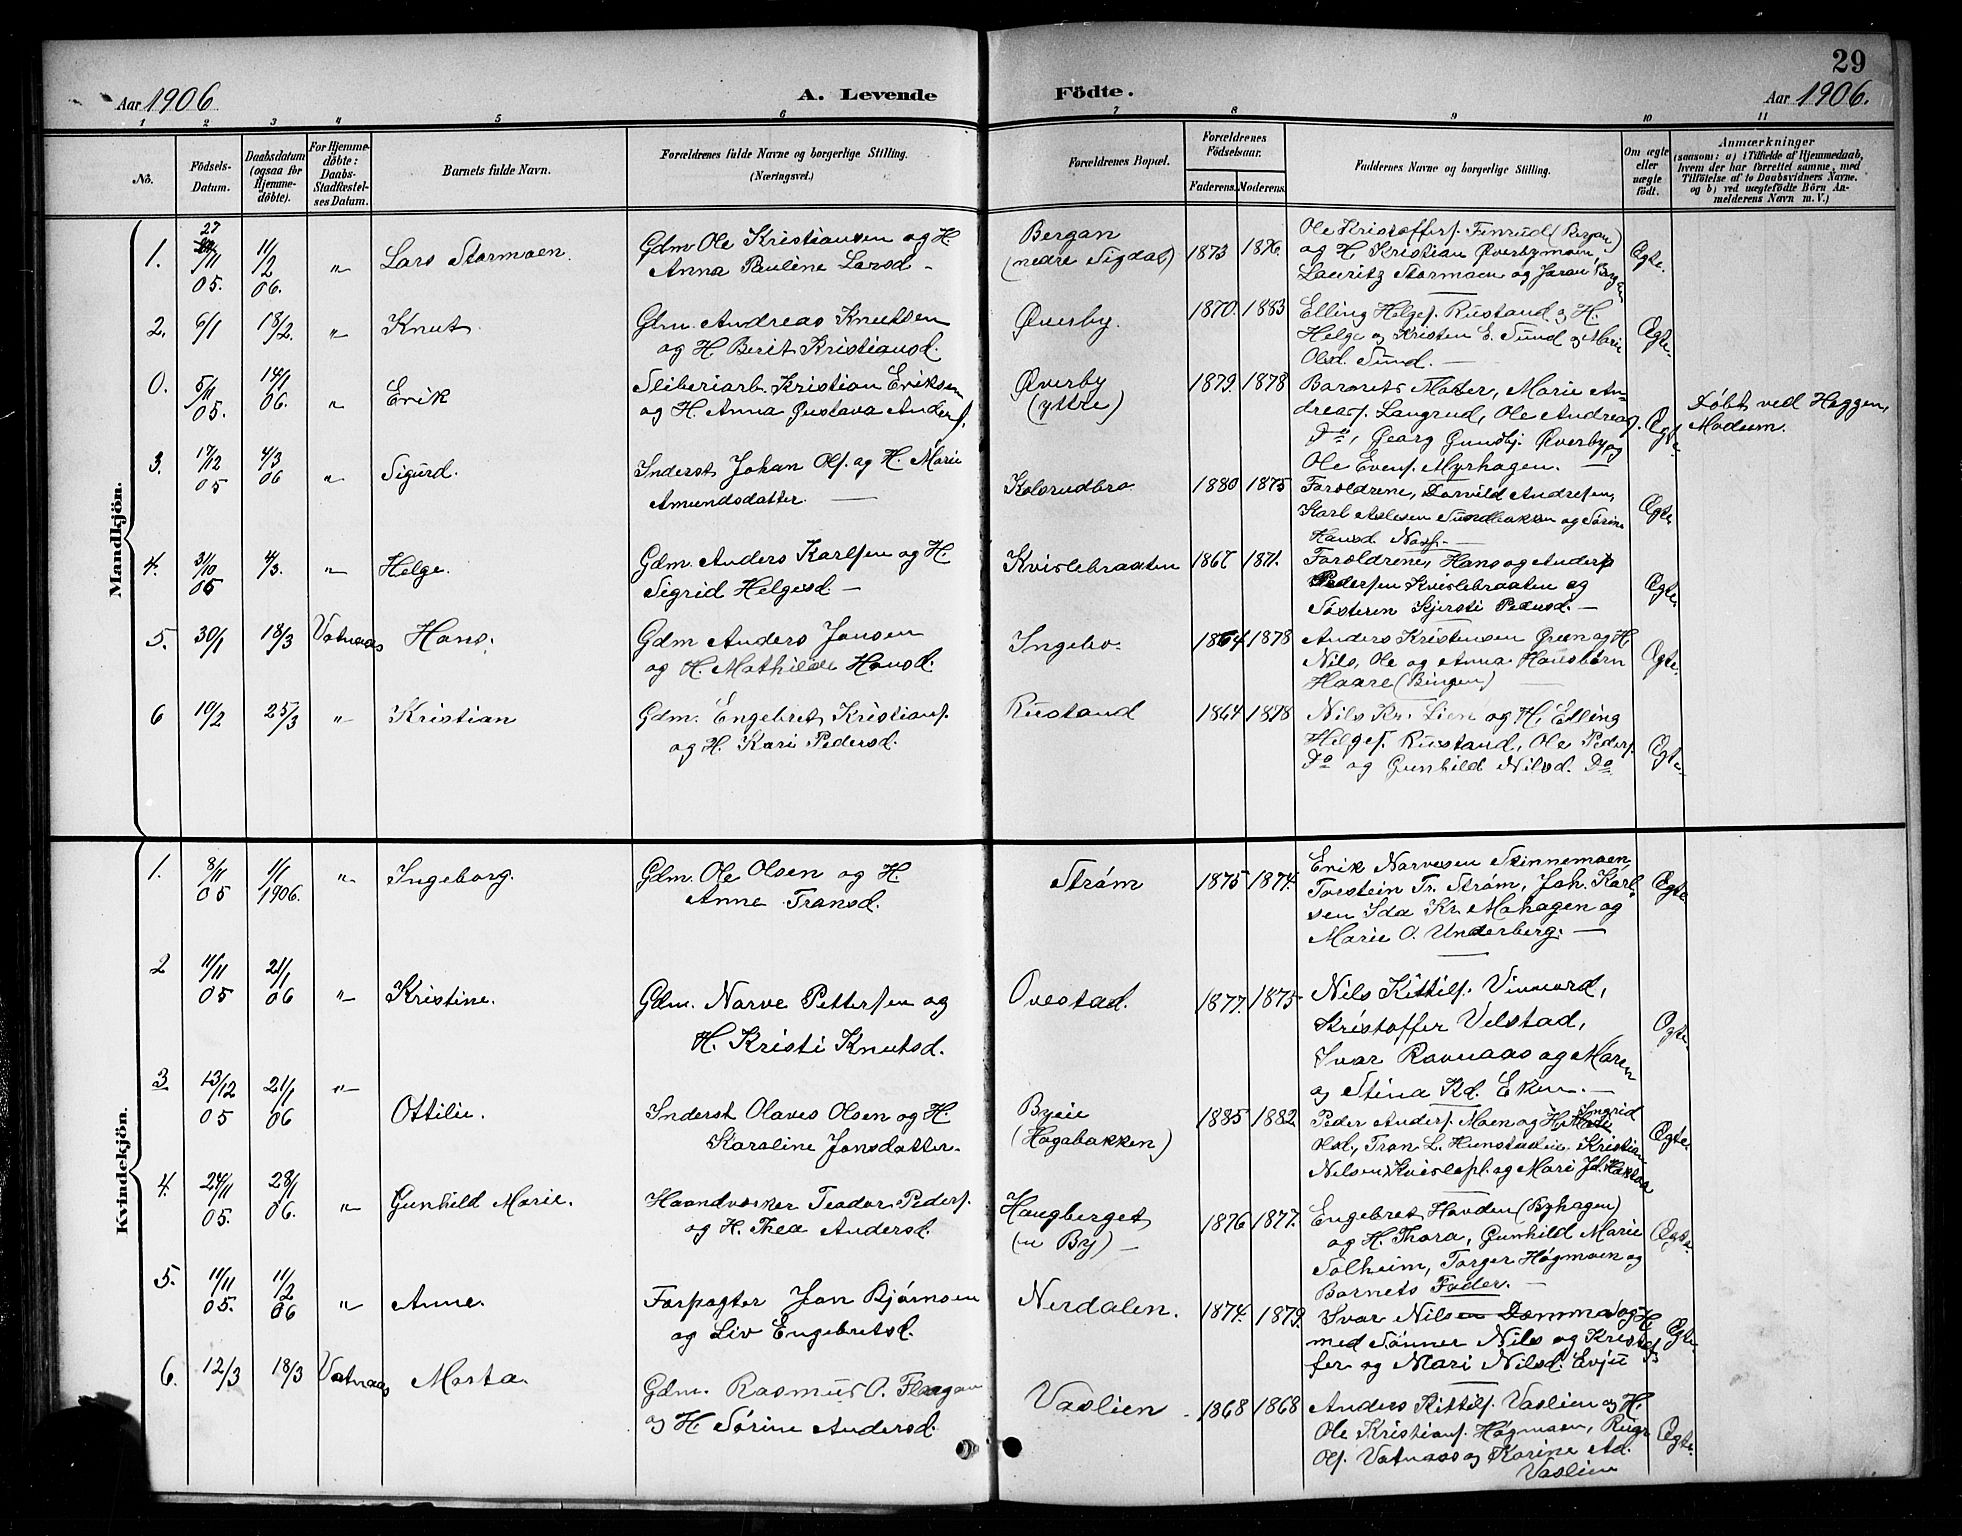 29
Aar 1906
A. Levende
Födte.
Aar 1906.
1 2 3 4 5 6 7 8 9 10 11
No.
Fødsels-Datum.
Daabsdatum (ogsaa for Hjemmedøbte).
For Hjemmedøbte: Daabs-Stadfæstelses Datum.
Barnets fulde Navn.
Forældrenes fulde Navne og borgerlige Stilling.
(Næringsvei.)
Forældrenes Bopæl.
Forældrenes Fødselsaar.
Faderens. Moderens.
Faddernes Navne og borgerlige Stilling.
Om ægte eller uægte født.
Anmærkninger
(saasom: a) i Tilfælde af Hjemmedaab, hvem der har forrettet samme, med Tilføielse af to Daabsvidners Navne. og b) ved uægtefødte Börn Anmelderens Navn m. V.)
Mandkjön.
1. 27/11 05. 11/2 06. " Lars Stormoen. Gdm Ole Kristiansen og H. Anna Pauline Larsd - Bergan (nedre Sigdal) 1873 1876. Ole Kristoffers. Finrud (Bergan) og H Kristian Øverbymoen, Lauritz Stormoen og Jøran Bergan Ægte.
2. 6/1 18/2. " Knut. Gdm. Andreas Knutsen og H. Berit Kristiansd. Øverby. 1870. 1883 Elling Helges. Rustand og H. Helge og Kristen E. Sund og Marie Olsd. Sund. — Ægte.
0. 5/11 05. 14/1 06. " Erik Sliberiarb. Kristian Eriksen og H. Anna Gustava Anders. Øverby (ytre) 1879. 1878 Barnets Moder, Marie Andreas. Langrud, Ole Andreas. Do, Georg Gundbj. Øverby og Ole Evens. Myrhagen. — Ægte Døbt ved Heggen, Modum.
3. 17/12 05 4/3 06 " Sigurd. Inderst Johan Ols. og H. Marie Amundsdatter. — Kolsrudbro 1880 1875 Forældrene, Torvild Andresen, Karl Aslesen Sundbakken og Sørine Hansd. — Ægte
4. 31/10 05 4/3. " Helge. Gdm. Anders Karlsen og H. Sigrid Helgesd — Kvislebraaten 1867 1871. Forældrene, Hans og Anders Pedersen Kvislebraaten og Søsteren Kjersti Pedersd. — Ægte.
5. 30/1 18/3 Vatnaas Hans. Gdm Anders Jonsen og H. Mathilde Hansd. Ingebo. 1864 1878 Anders Kristensen Green og H. Nils, Ole og Anna Hansbørn Haare (Bingen) Ægte.
6 10/2 25/3 " Kristian Gdm. Engebret Kristians. og H. Kari Pedersd. Rustand 1864 1878 Nils Kr. Lien og H, Elling Helges. Rustand, Ole Peders. Do og Gunhild Nilsd. Do Ægte.
Kvindekjön.
1. 8/11 05 1/1 1906. " Ingeborg. Gdm. Ole Olsen og H. Anne Transd. Strøm 1875 1874. Erik Narvesen Stinnemoen Torstein Tr. Strøm, Joh. Karlsen Ida Kr. Mohagen og Marie O. Underberg. — Ægte
2 11/11 05 21/1 06 " Kristine. Gdm. Narve Pettersen og H. Kristi Knutsd. Ovestad. 1877. 1875 Nils Kittils. Vinnord, Kristoffer Velstad, Ivar Ravnaas og Maren og Stina Kd. Eken. — Ægte.
3 13/12 05 21/1 06 " Ottilie. Inderst Olaves Olsen og H. Karoline Jonsdatter. Byeie (Hagabakken) 1885 1882 Peder Anders. Moen og H. Ingrid Olsd, Tran L. Hunstadeie, Kristian Nilsen og Mari Ægte
4. 24/11 05. 28/1 06. " Gunhild Marie. Haandværker Teodor Peders. og H. Thea Andersd. Haugberget (u By) — 1876 1877. Engebret Hovden (Byhagen) og H. Thora, Gunhild Marie Solheim, Torger Høgmoen og Barnets Fader. — Ægte
5. 11/11 05. 11/2 06 " Anne. Forpagter Jon Bjørnsen og Liv Engebretsd. Nerdalen. 1874. 1879. Ivar Nilsen og H. med Sønner Nils og Kristoffer og Mari Nilsd. Evju Ægte
6. 12/3 18/3 Vatnaas Marta. Gdm. Rasmus O. Flaagan og H Sørine Andersd. Vaslien 1868 1868 Anders Kittils. Vaslien og H. Ole Kristians. Høgmoen, Ols. Vatnaas og Karine Ad. Vaslien Ægte.